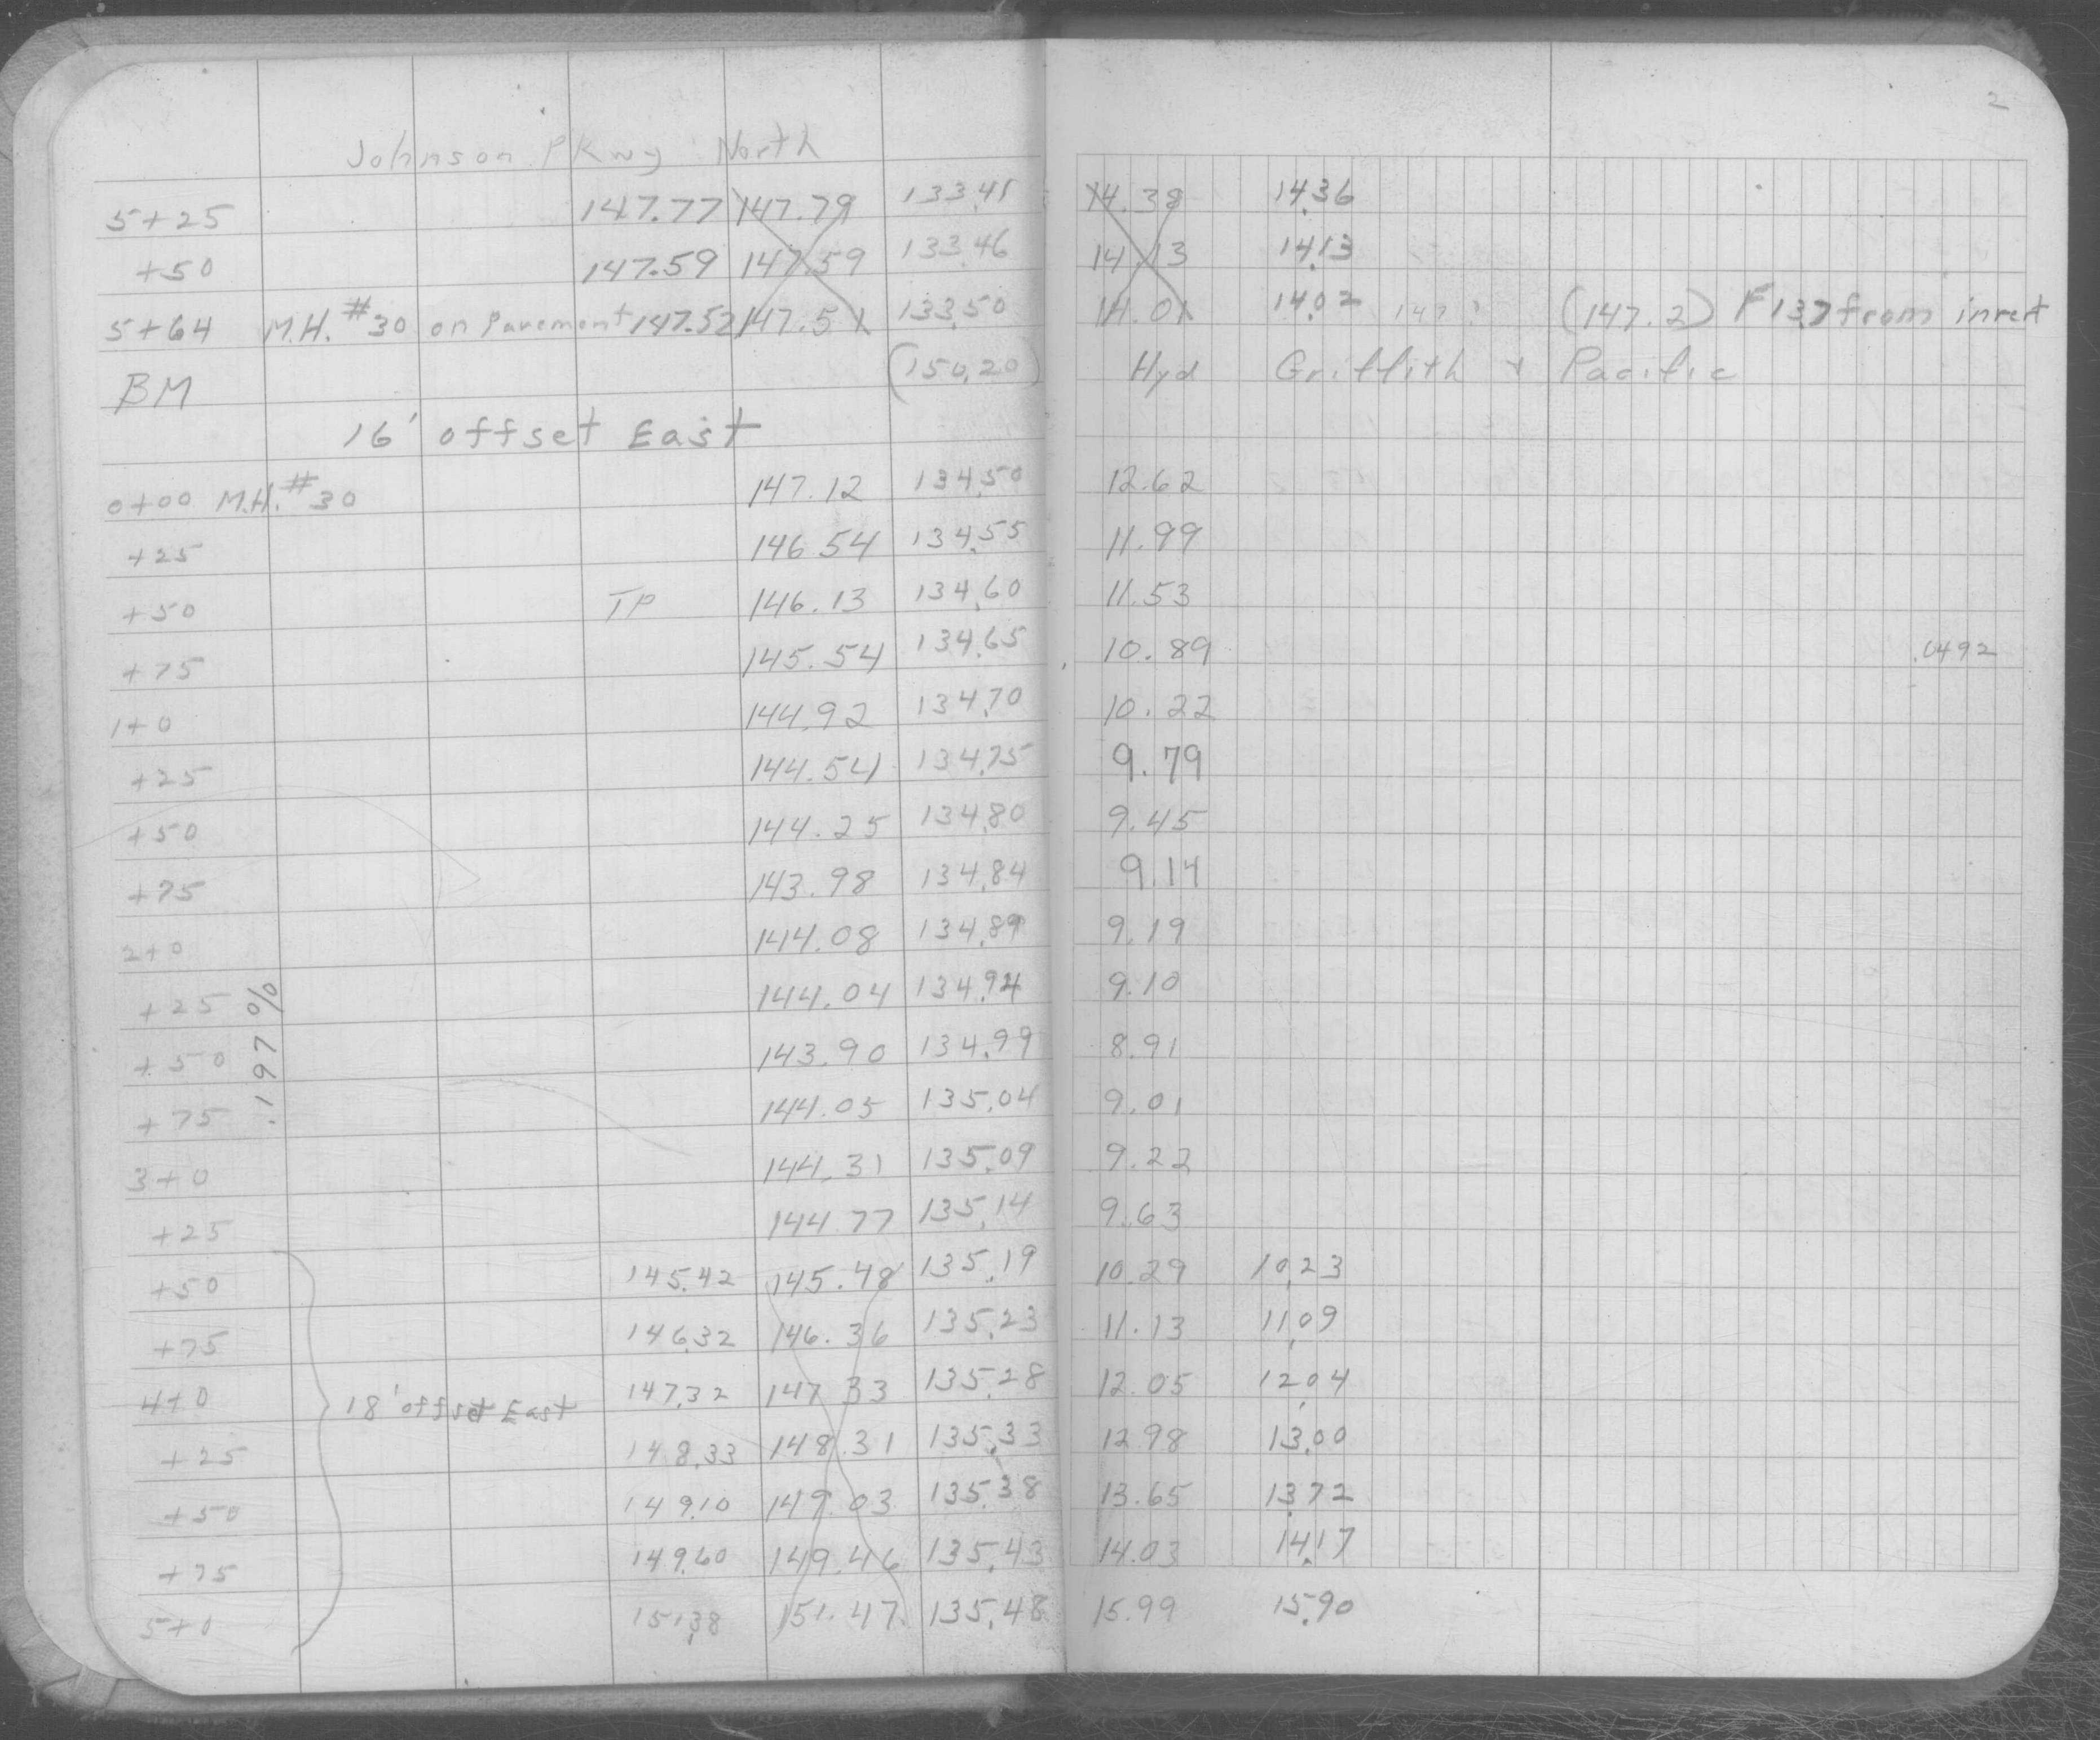 2
Johnson Pkwy North
5+25 147.77 147.79 133.41 14.38 14.36
+50 147.59 147.59 133.46 14.13 14.13
5+64 M.H. #30 on Pavement 147.52 147.51 133.50 14.01 14.02 147 (147.2) F 13.7 from invert
BM (150.20) Hyd Griffith + Pacific
16' offset East
0+00 M.H. #30 147.12 134.50 12.62
+25 146.54 134.55 11.99
+50 TP 146.13 134.60 11.53
+75 145.54 134.65 10.89 .0492
1+0 144.92 134.70 10.22
+25 144.54 134.75 9.79
+50 144.25 134.80 9.45
+75 143.98 134.84 9.14
2+0 144.08 134.89 9.19
+25 144.04 134.94 9.10
+50 143.90 134.99 8.91
+75 144.05 135.04 9.01
.197 %
3+0 144.31 135.09 9.22
+25 144.77 135.14 9.63
+50 145.42 145.48 135.19 10.29 10.23
+75 146.32 146.36 135.23 11.13 11.09
4+0 18' offset East 147.32 147.33 135.28 12.05 12.04
+25 148.33 148.31 135.33 12.98 13.00
+50 149.10 149.03 135.38 13.65 13.72
+75 149.60 149.46 135.43 14.03 14.17
5+0 151.38 151.47 135.48 15.99 15.90